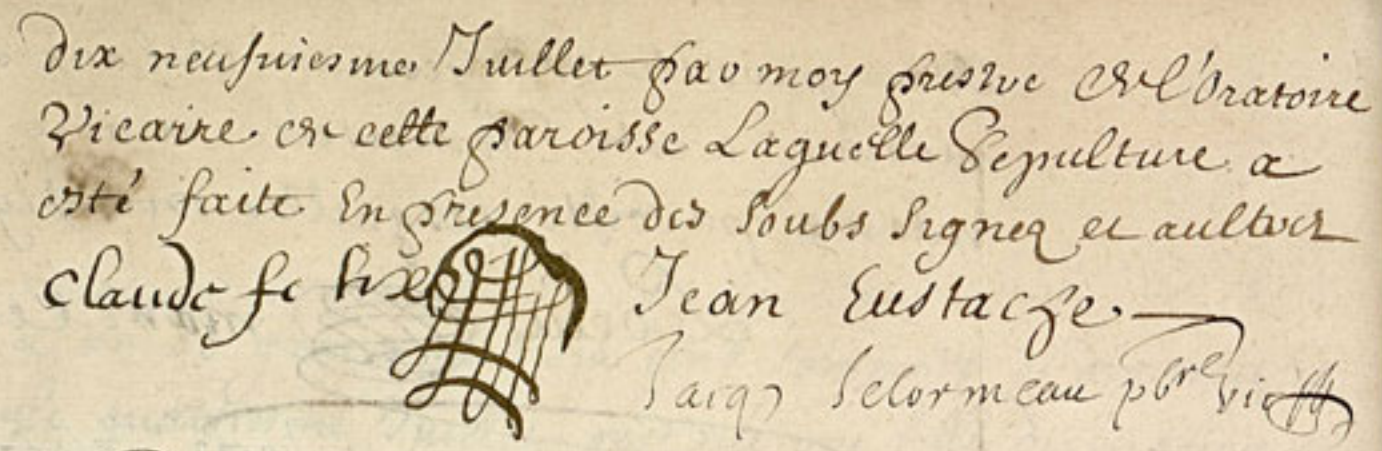 dix neufuiesme Juillet par moy prestre de l'Oratoire
Vicaire de cette paroisse Laquelle Sepulture a
esté faite En presence des Soubs Signez et aultres
Claude fe lix Jean Eustache
Jacq Delormeau pbre vic